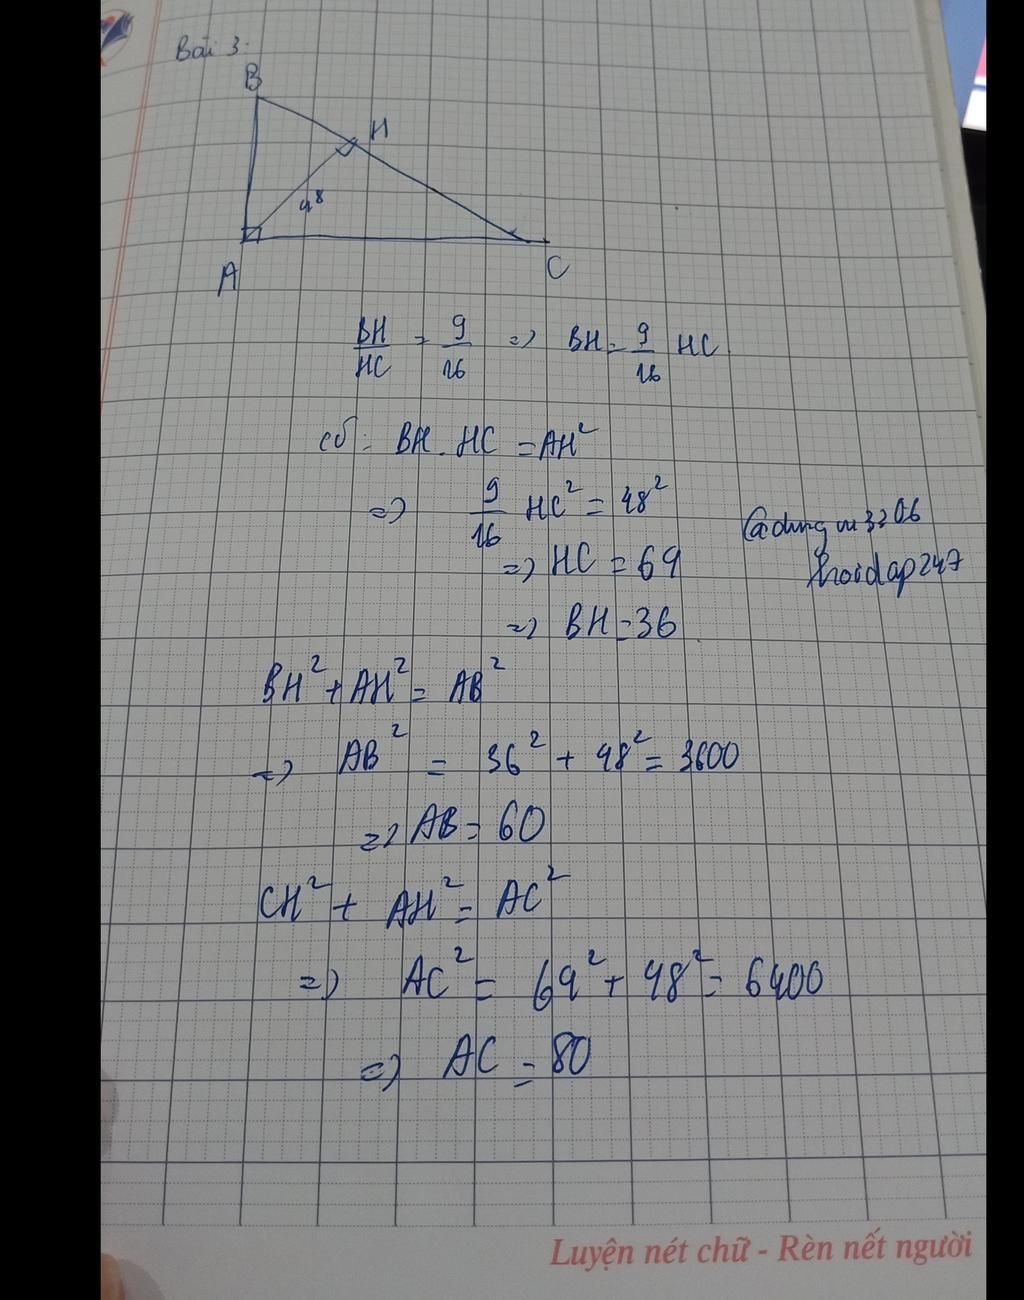 Bài 3:
B
H
48
A
C
BH/HC = 9/16 => BH = 9/16 HC
có: BH . HC = AH²
=> 9/16 HC² = 48²
=> HC = 64
=> BH = 36
@dungvu3206
hoidap247
BH² + AH² = AB²
=> AB² = 36² + 48² = 3600
=> AB = 60
CH² + AH² = AC²
=> AC² = 64² + 48² = 6400
=> AC = 80
Luyện nét chữ - Rèn nết người